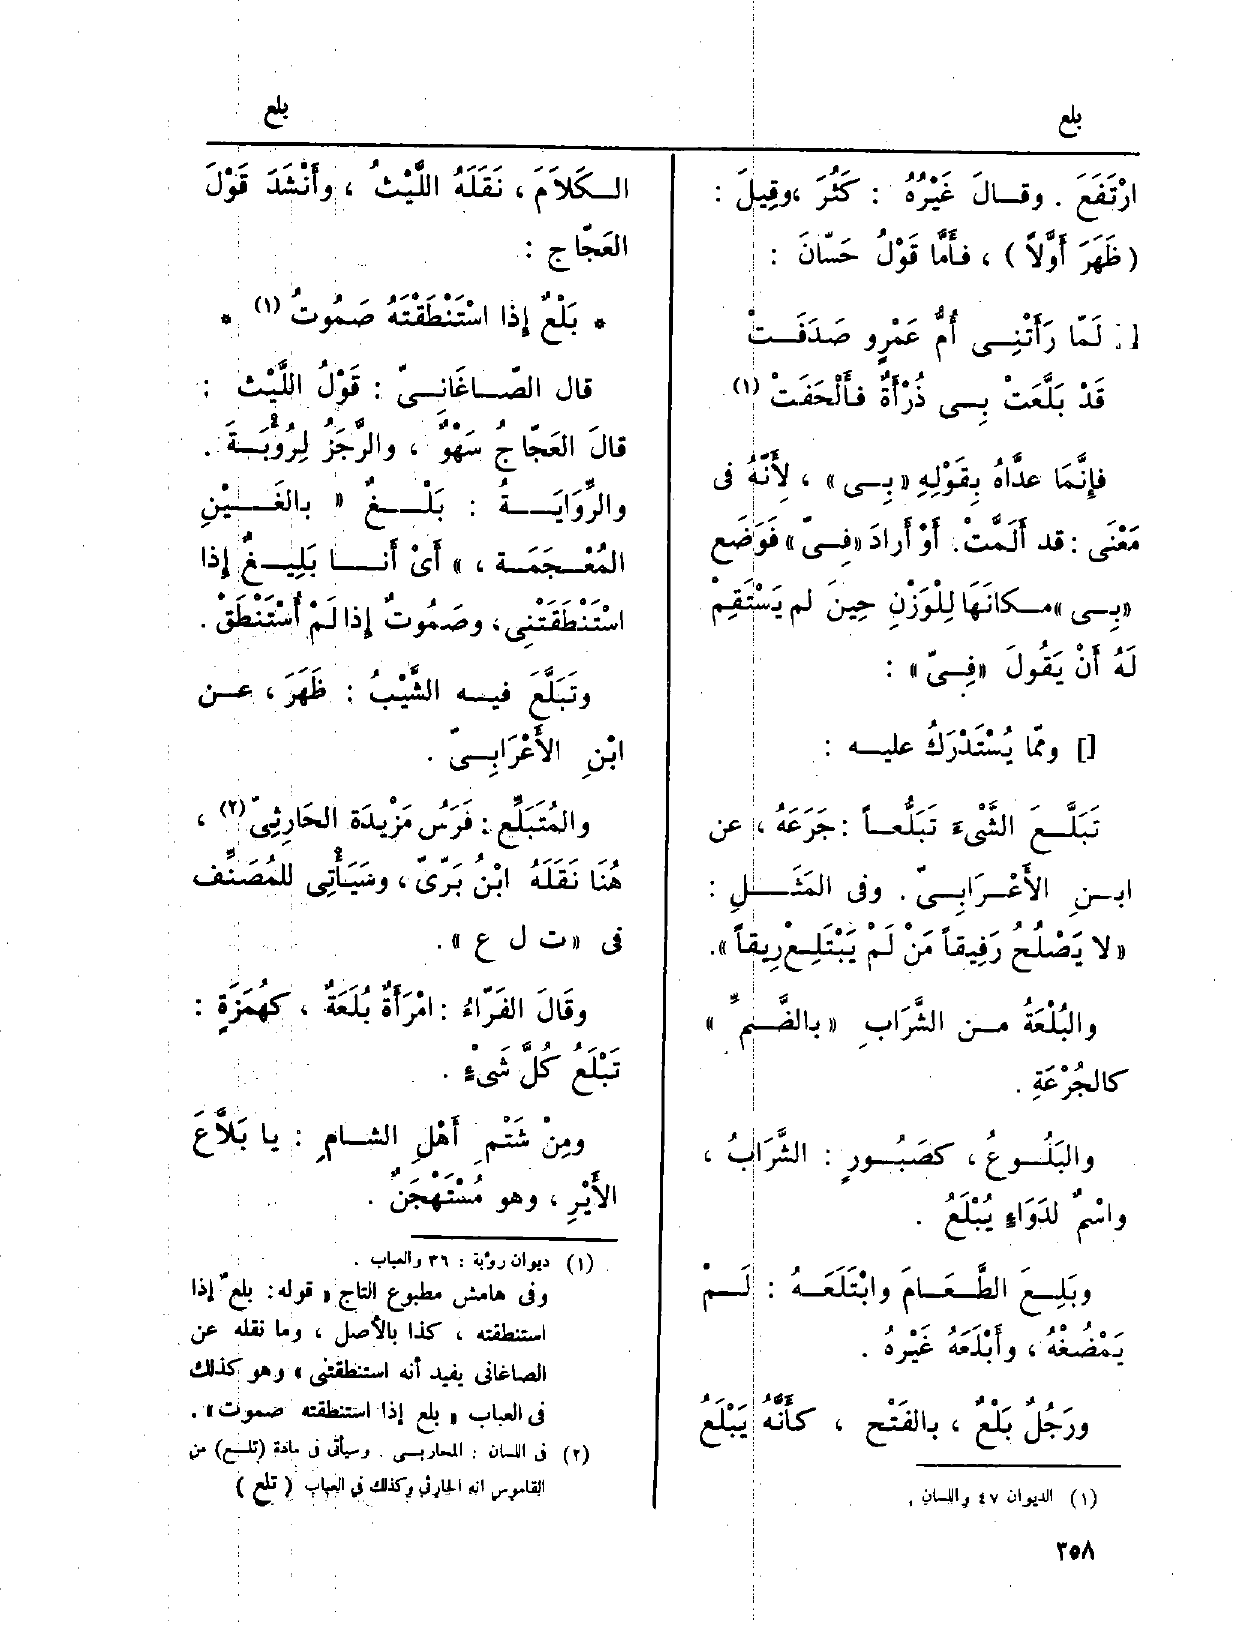 بلع
بلع
ارْتَفَعَ . وقـالَ غَيْرُهُ : كَثُرَ ،وقِيلَ :
( ظَهَرَ أَوَّلاً ) ، فـأَمَّا قَوْلُ حَسّانَ :
لَمّا رَأَتْنِـى أُمُّ عَمْرٍو صَدَفَـتْ
قَدْ بَلَّعَتْ بِـى ذُرْأَةٌ فـأَلْحَفَتْ (١)
فإِنَّمَا عدّاهُ بِقَوْلِهِ «بِـى» ، لِأَنَّهُ فى
مَعْنَى : قد أَلَمَّتْ. أَوْ أرادَ «فِـىّ» فَوَضَع
«بِـى »مـكانَهَا لِلْوَزْنِ حِينَ لم يَسْتَقِمْ
لَهُ أَنْ يَقُولَ «فِـىّ» :
[] وممّا يُسْتَدْرَكُ عليـه :
تَبَلَّـعَ الشَّىْءَ تَبَلُّعـاً : جَرَعَهُ ، عن
ابـنِ الأَعْـرَابِـىّ . وفى المَثَـلِ :
«لا يَصْلُحُ رَفِيقاً مَنْ لَمْ يَبْتَلِـعْ رِيقاً».
والبُلْعَةُ مـن الشَّرَابِ «بالضَّـمِّ »
كالجُرْعَةِ .
والبَلُـوعُ ، كصَبُـورٍ : الشَّرَابُ ،
واسْمٌ لدَوَاءٍ يُبْلَعُ .
وبَلِـعَ الطَّعَـامَ وابْتَلَعَـهُ : لَـمْ
يَمْضُغْهُ ، وأَبْلَعَهُ غَيْرهُ .
ورَجُلٌ بَلْعٌ ، بالفَتْح ، كأَنَّهُ يَبْلَعُ
(١) الديوان ٤٧ واللسان .
٣٥٨
الـكَلاَمَ ، نَقَلَهُ اللَّيْثُ ، وأَنْشَدَ قَوْلَ
العَجّاج :
* بَلْعٌ إِذا اسْتَنْطَقْتَهُ صَمُوتُ (١) *
قال الصّـاغَانـىّ : قَوْلُ اللَّيْث :
قالَ العَجّاجُ سَهْوٌ ، والرَّجَزُ لِرُؤْبَـةَ .
والرِّوَايَـةُ : بَلْـغٌ « بالغَـيْنِ
المُعْـجَمَـة ، » أَىْ أَنـا بَلِيـغٌ إِذا
اسْتَنْطَقَتْنِى، وصَمُوتٌ إذا لَمْ أُسْتَنْطَقْ .
وتَبَلَّعَ فيـه الشَّيْبُ : ظَهَرَ ، عـن
ابْنِ الأَعْرَابِـىّ .
والمُتَبَلِّع : فَرَسُ مَزْيَدَة الحَارِثِىّ (٢) ،
هُنَا نَقَلَهُ ابْنُ بَرّىّ ، وسَيَأْتِى للمُصَنِّف
فى «ت ل ع ».
وقَالَ الفَرّاءُ : امْرَأَةٌ بُلَعَةٌ ، كهُمَزَةٍ :
تَبْلَعُ كُلَّ شَىْءٍ .
ومِنْ شَتْمِ أَهْلِ الشـامِ : يا بَلاَّعَ
الأَيْرِ ، وهو مُسْتَهْجَنٌ .
(١) ديوان رؤبة : ٣٦ والعباب .
وفى هامش مطبوع التاج « قوله : بلعٌ إذا
استنطقته ، كذا بالأصل ، وما نقله عن
الصاغانى يفيد أنه استنطقتنى » وهو كذلك
فى العباب « بلع إذا استنطقته صموت» .
(٢) فى اللسان : المحاربـى . وسيأتى فى مادة (تلـع) من
القاموس انه الحارثى وكذلك فى العباب ( تلع )